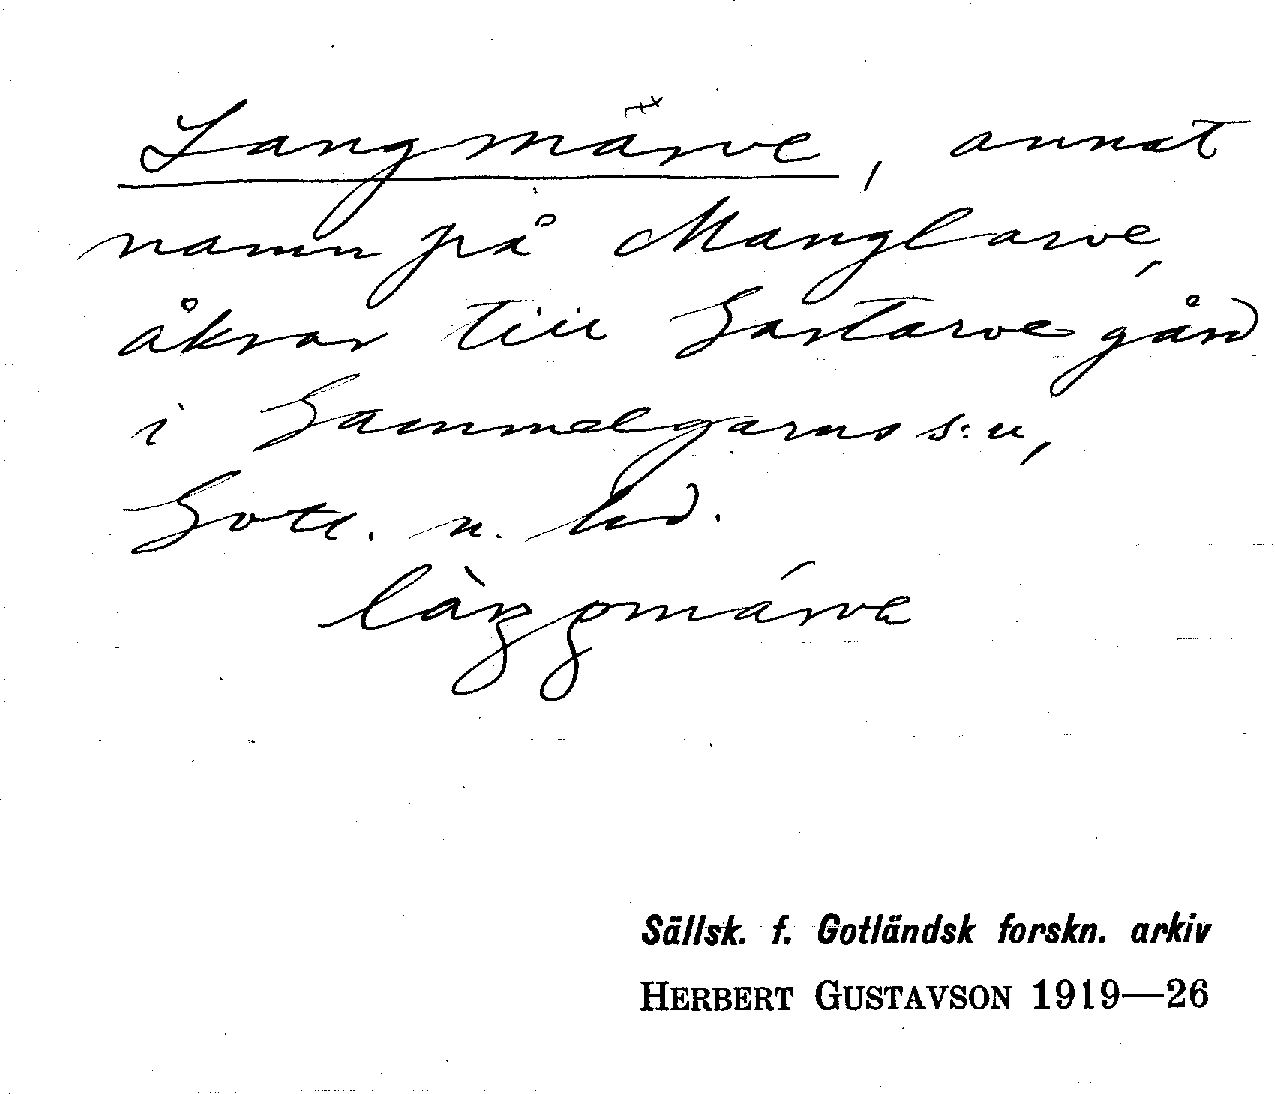 Langmärve, annat
namn på Manglarve,
åkrar till Gartarve gård
i Gammelgarns s:n,
Gotl. n. hd.
làŋŋmárvä
Sällsk. f. Gotländsk forskn. arkiv
HERBERT GUSTAVSON 1919—26